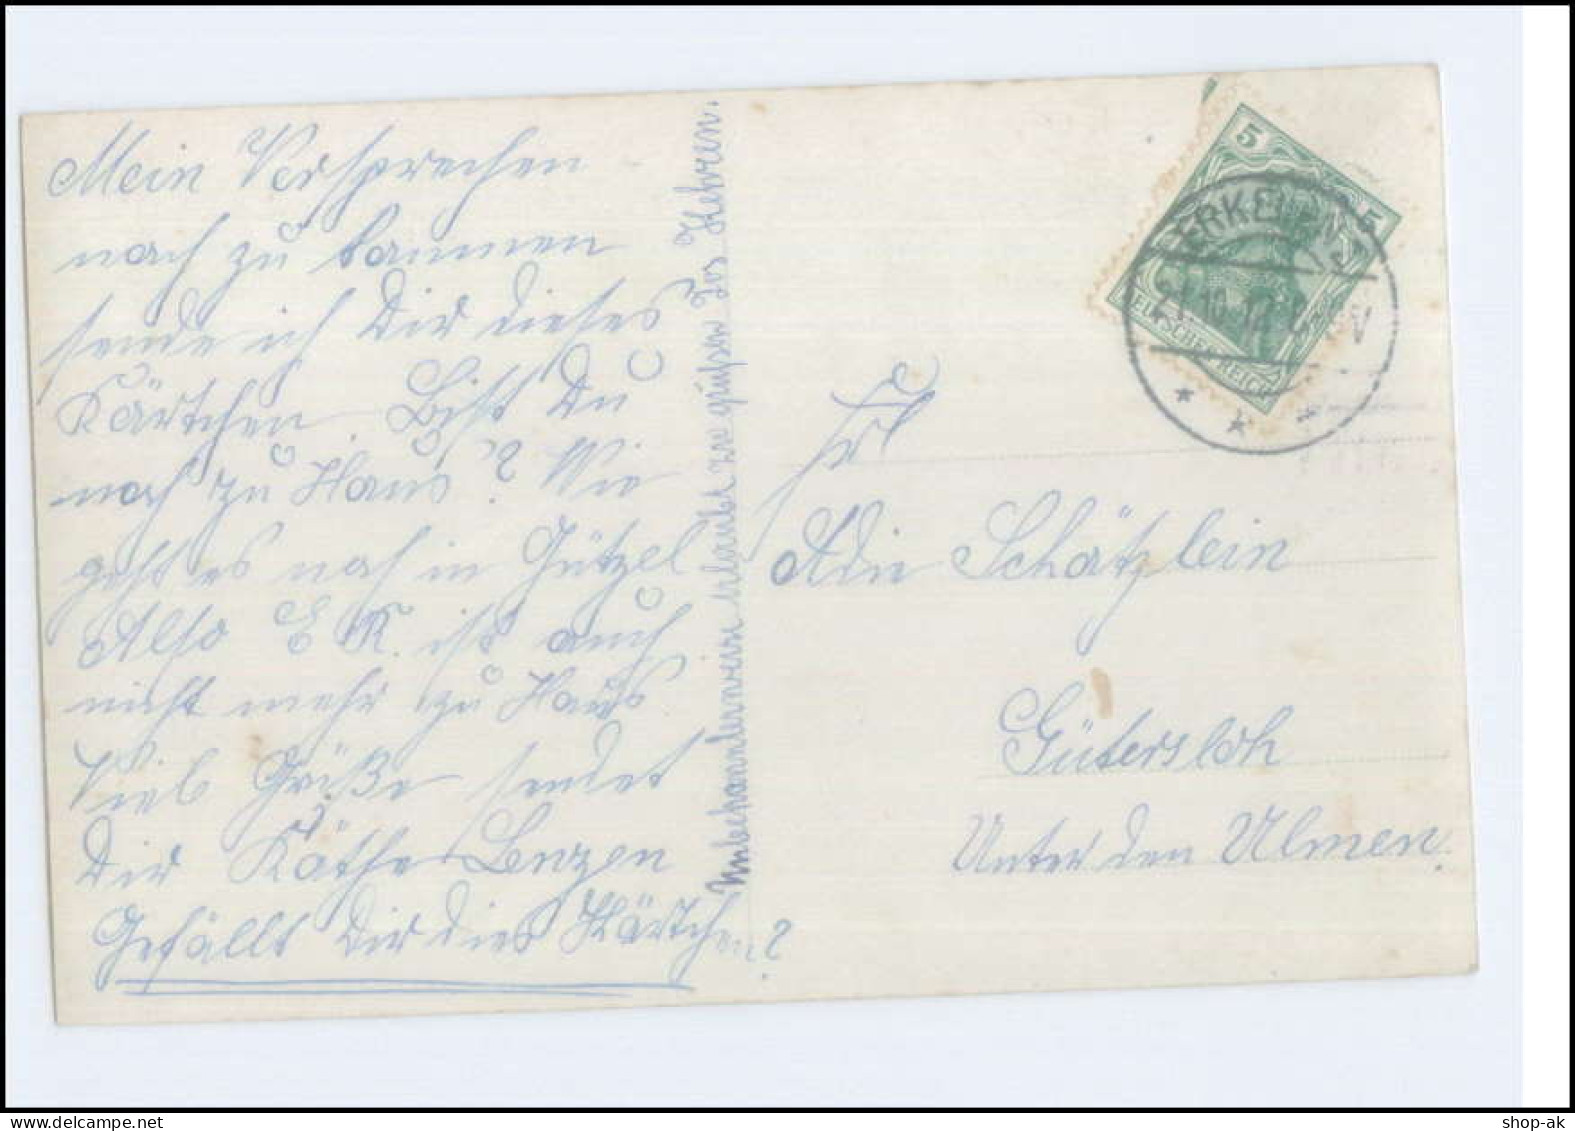 Mein Versprechen
nach zu kommen
sende ich Dir dieses
Kärtchen. Bist Du
noch zu Haus? Wie
geht es noch in Gützel
Also E K. ist auch
nicht mehr zu Haus
Viele Grüße sendet
Dir Käthe Lenzen
Gefällt Dir dies Kärtchen?
Unbekannterweise erlaubt zu grüßen Jos Hebren.
5
5
DEUTSCHES REICH
ERKELENZ
21.10.12
V
Frl
Adin Schätzlein
Gütersloh
Unter den Ulmen.
shop-ak